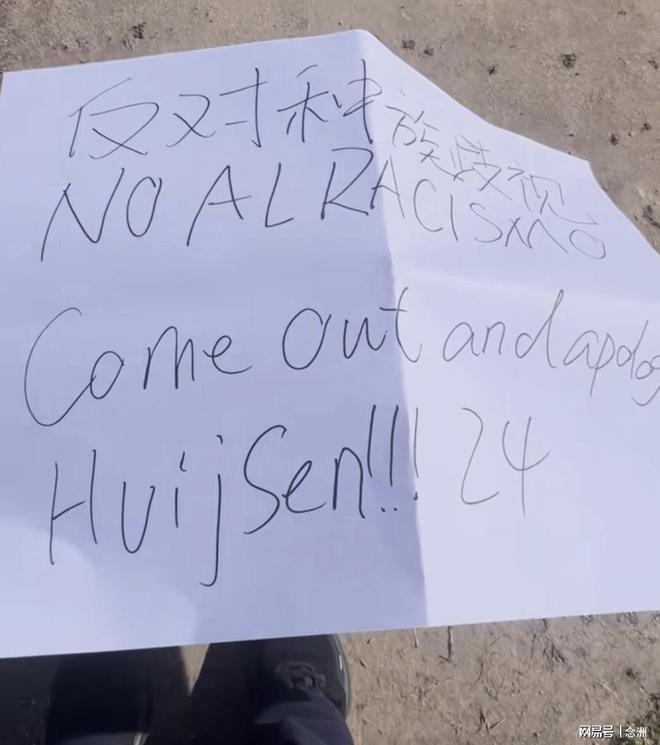 反对种族歧视
NO AL RACISMO
Come out and apolog
Huijsen!!! 24
网易号 | 念洲